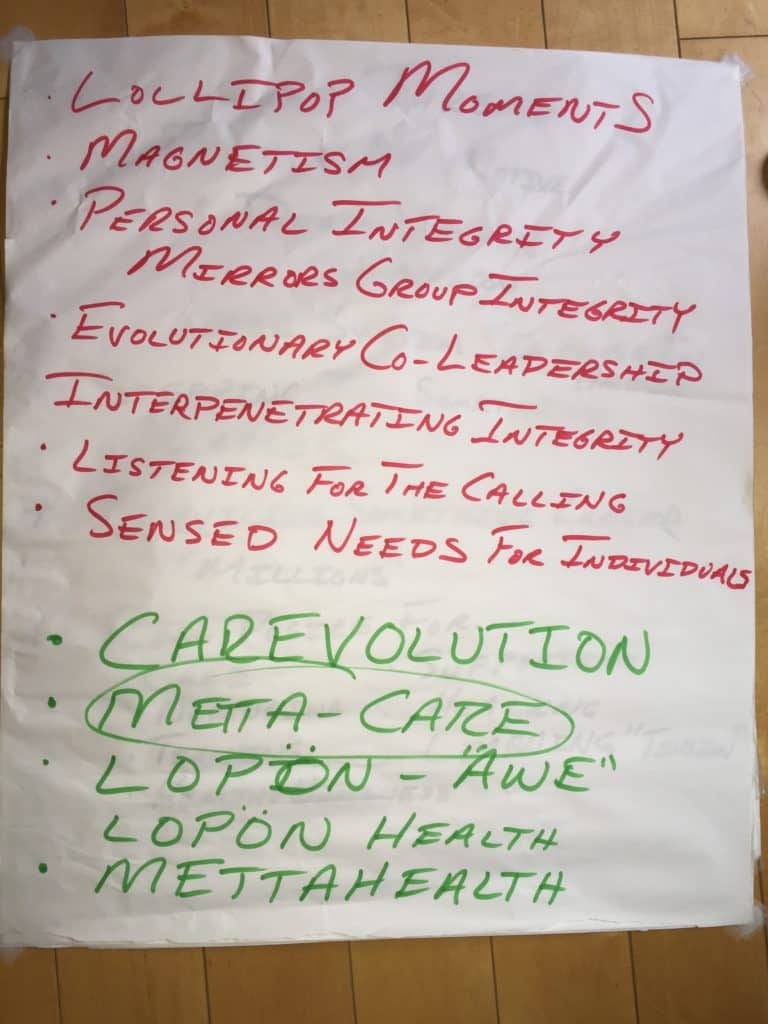 · LOLLIPOP MOMENTS
· MAGNETISM
· PERSONAL INTEGRITY
MIRRORS GROUP INTEGRITY
· EVOLUTIONARY CO-LEADERSHIP
INTERPENETRATING INTEGRITY
· LISTENING FOR THE CALLING
· SENSED NEEDS FOR INDIVIDUALS
· CAREVOLUTION
· METTA-CARE
· LOPÖN - "AWE"
LOPÖN HEALTH
· METTAHEALTH